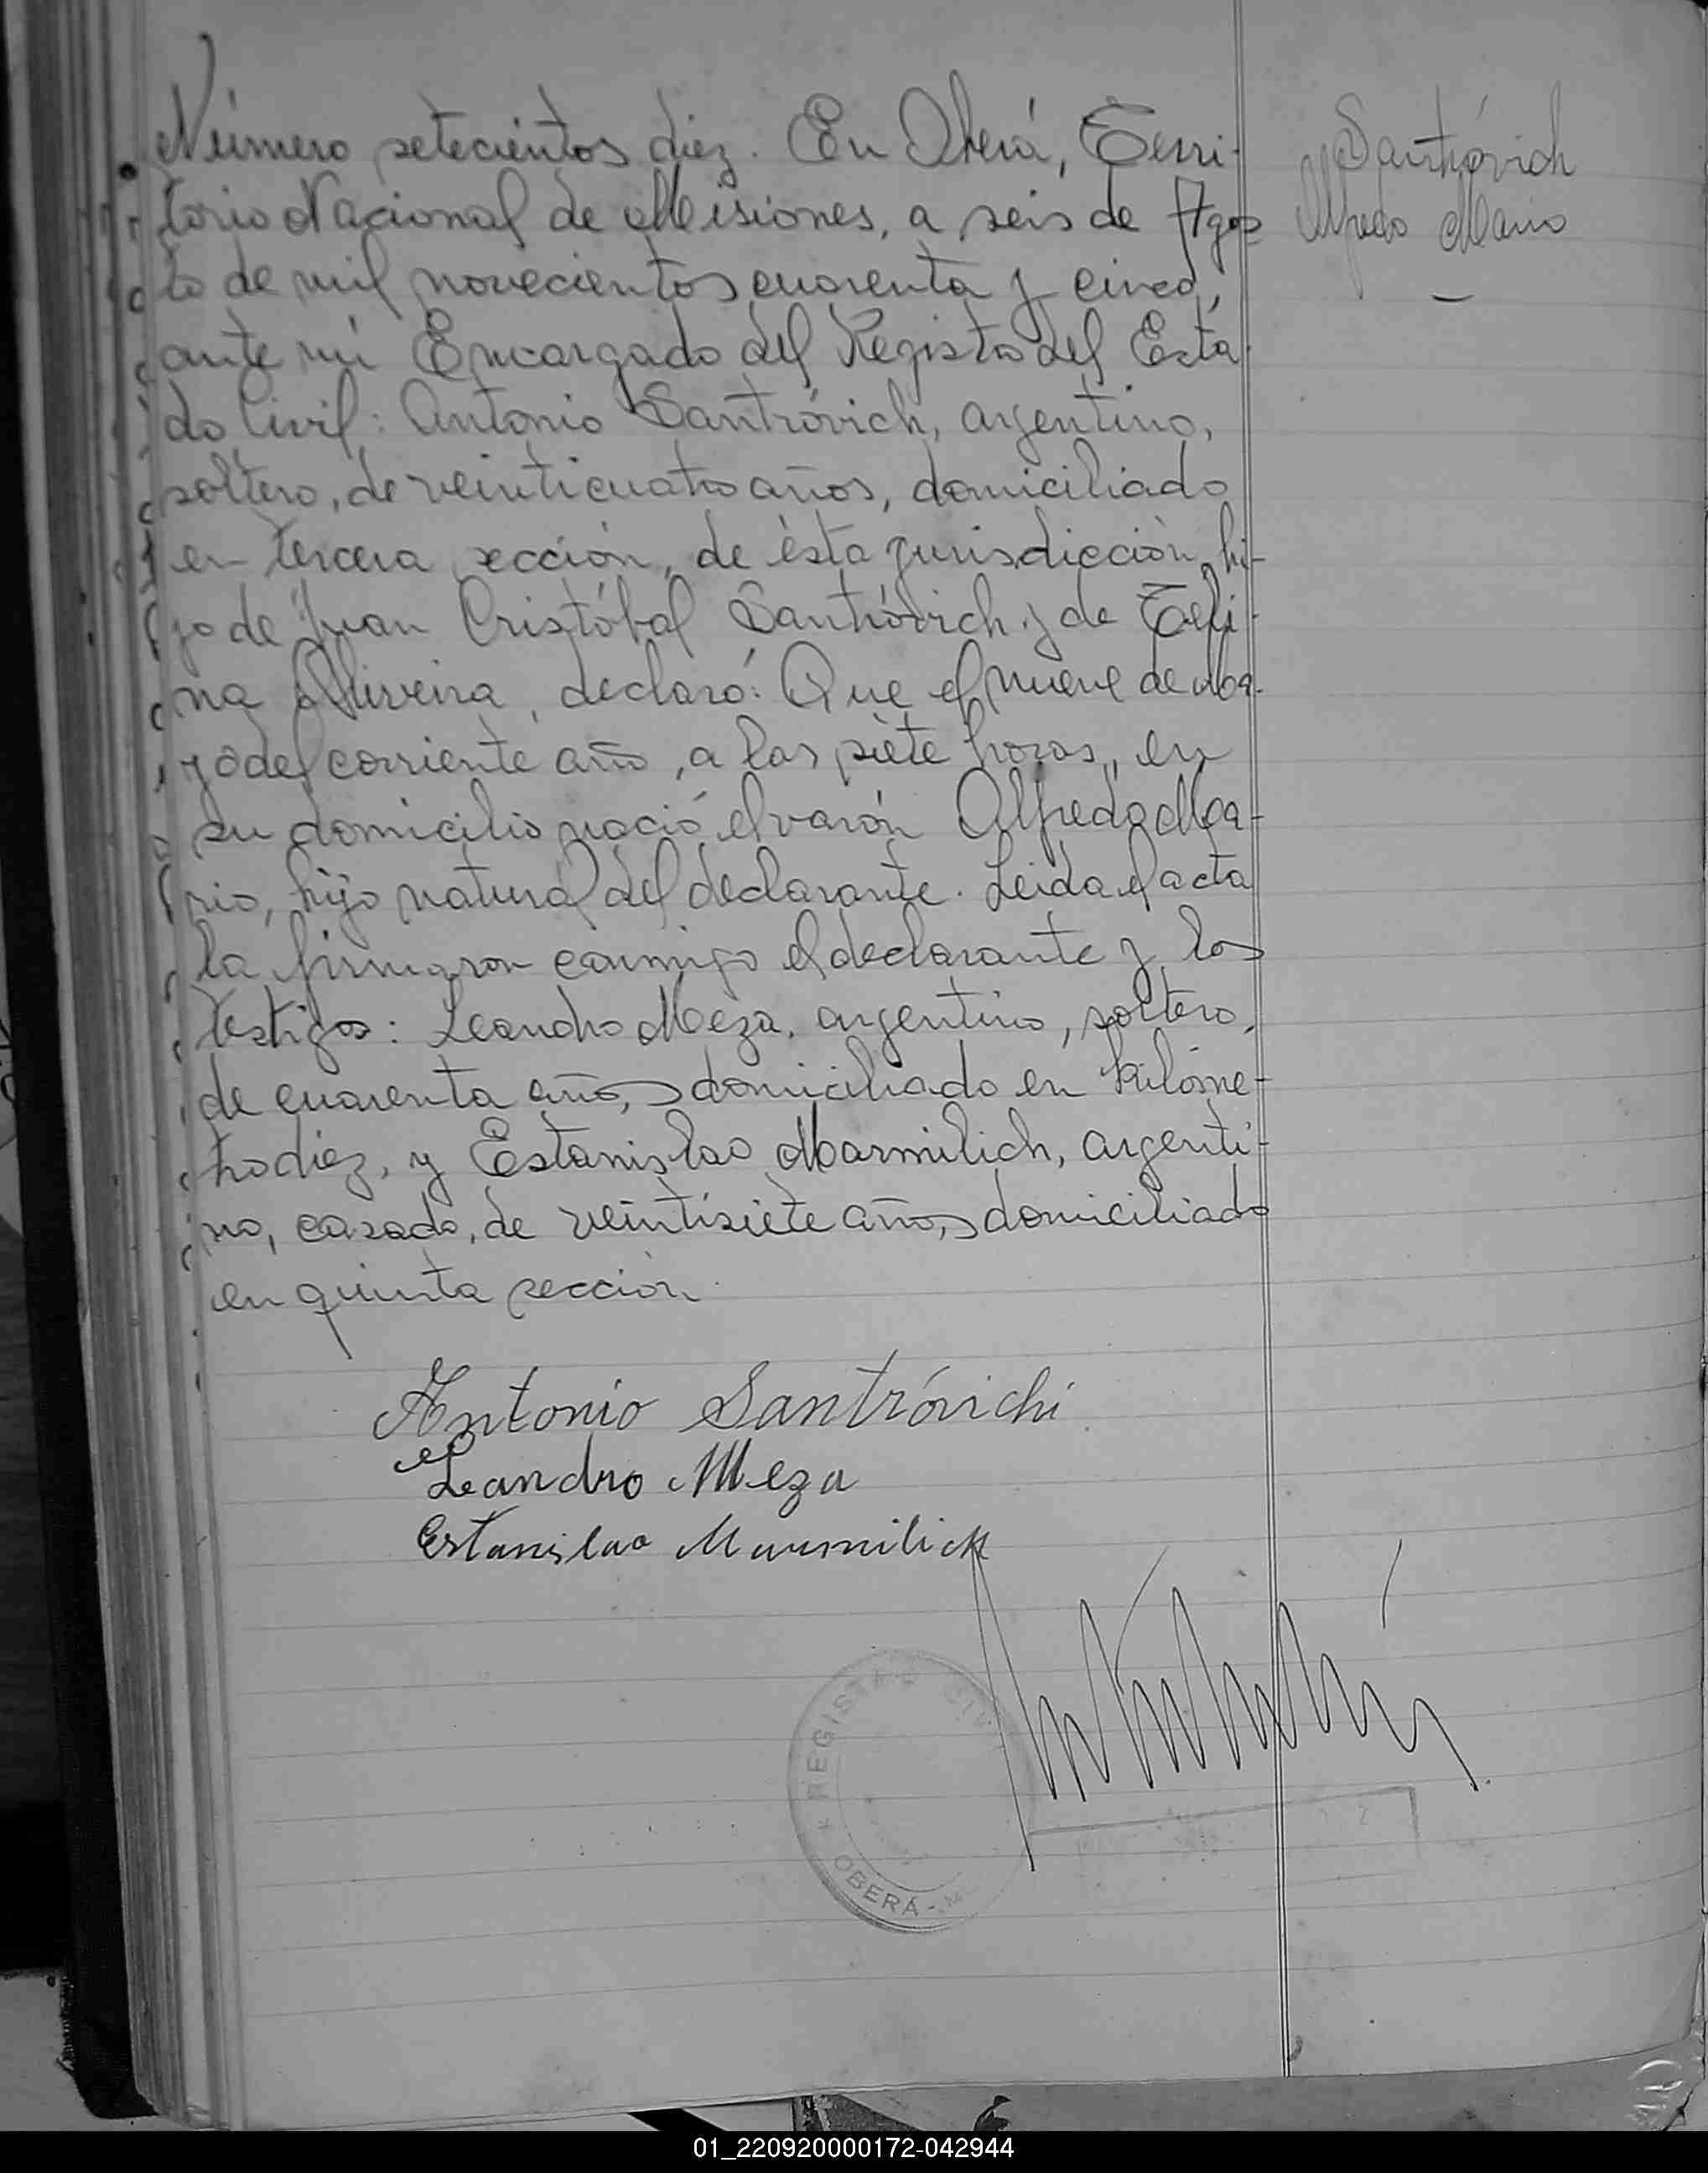 Número setecientos diez. En Oberá, Terri-
torio Nacional de Misiones, a seis de Agos-
to de mil novecientos cuarenta y cinco,
ante mí Encargado del Registro del Esta-
do Civil: Antonio Santróvich, argentino,
soltero, de veinticuatro años, domiciliado
en tercera sección, de ésta jurisdicción, hi-
jo de Juan Cristóbal Santróvich y de
na Oliveira, declaró: Que el nueve de Ma-
yo del corriente año, a las siete horas, en
su domicilio nació el varón Alfredo Ma-
rio, hijo natural del declarante. Leida el acta
la firmaron conmigo el declarante y los
testigos: Leandro Meza, argentino, soltero,
de cuarenta años, domiciliado en kilóme-
tro diez, y Estanislao Marmilich, argenti-
no, casado, de veintisiete años, domiciliado
en quinta sección.
Santróvich
Alfredo Mario
Antonio Santróvichi
Leandro Meza
Estanislao Marmilich
REGISTRO CIVIL
OBERÁ - M
01_220920000172-042944